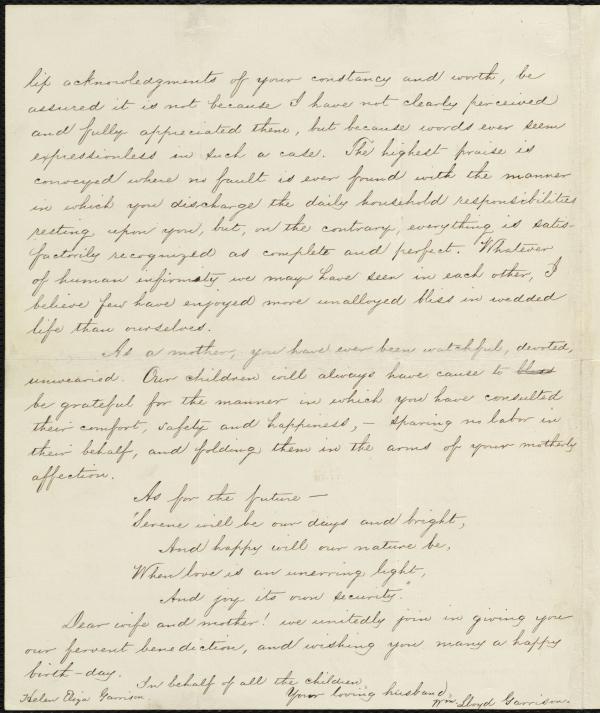 lip acknowledgments of your constancy and worth, be
assured it is not because I have not clearly perceived
and fully appreciated them, but because words ever seem
expressionless in such a case. The highest praise is
conveyed where no fault is ever found with the manner
in which you discharge the daily household responsibilities
resting upon you, but, on the contrary, everything is satis-
factorily recognized as complete and perfect. Whatever
of human infirmity we may have seen in each other, I
believe few have enjoyed more unalloyed bliss in wedded
life than ourselves.
As a mother, you have ever been watchful, devoted,
unwearied. Our children will always have cause to bless
be grateful for the manner in which you have consulted
their comfort, safety and happiness, — sparing no labor in
their behalf, and folding them in the arms of your motherly
affection.
As for the future —
"Serene will be our days and bright,
And happy will our nature be,
When love is an unerring light,
And joy its own security."
Dear wife and mother! we unitedly join in giving you
our fervent benediction, and wishing you many a happy
birth-day.
In behalf of all the children,
Your loving husband,
Helen Eliza Garrison.
Wm. Lloyd Garrison.